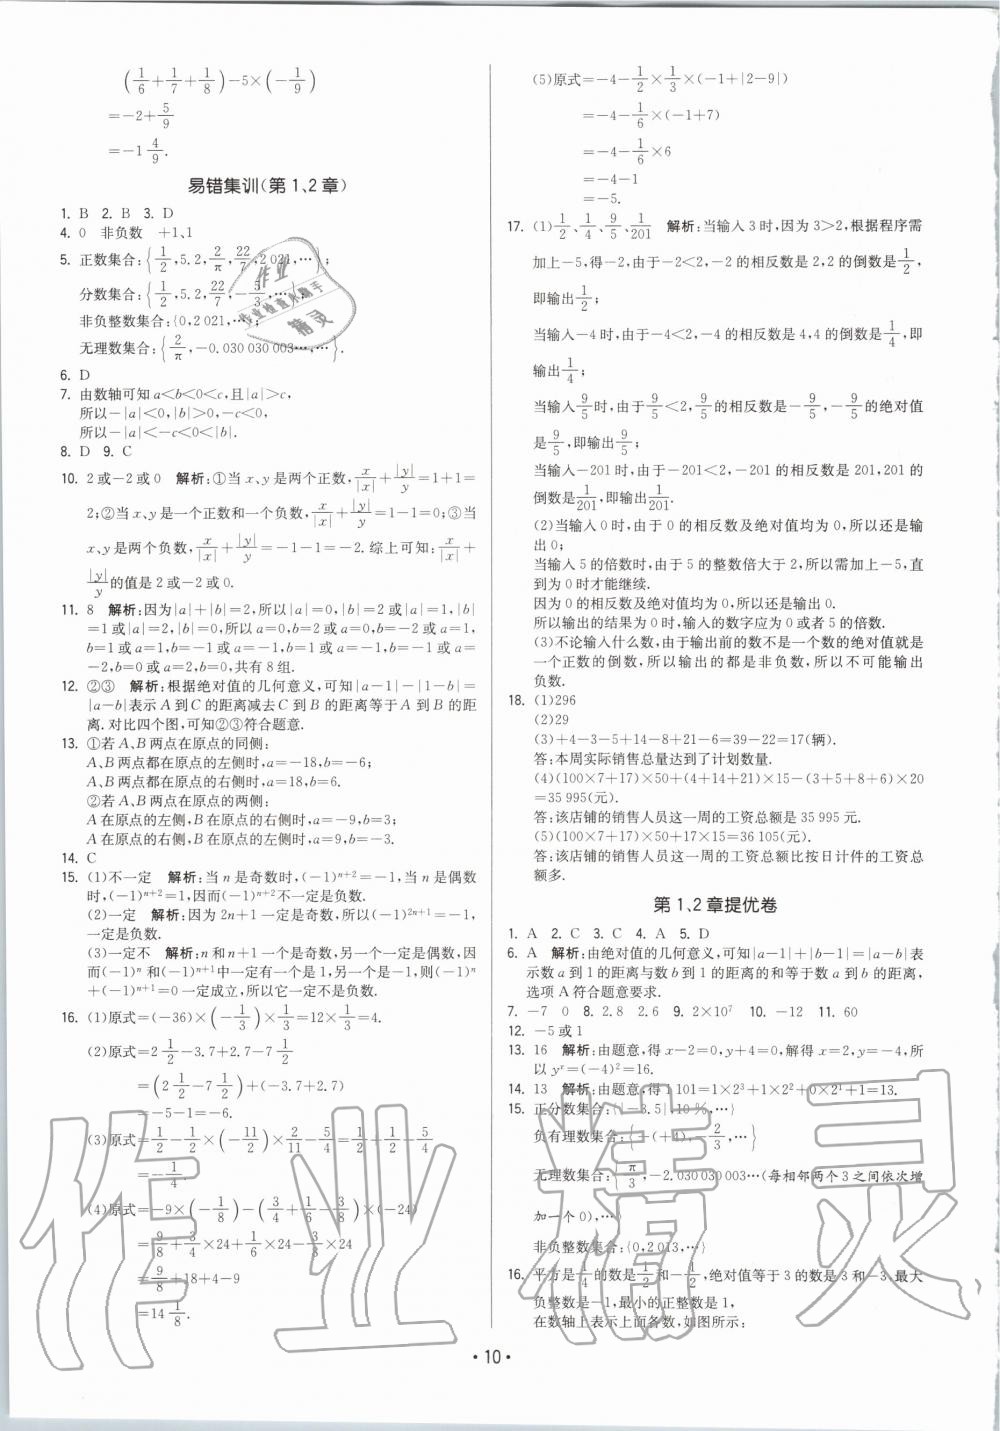 (1/6+1/7+1/8)-5×(-1/9)
=-2+5/9
=-1 4/9.
易错集训(第1、2章)
1. B 2. B 3. D
4. 0 非负数 +1、1
5. 正数集合:{1/2,5.2,2/π,22/7,2 021,…};
分数集合:{1/2,5.2,22/7,-5/3,…};
非负整数集合:{0,2 021,…};
无理数集合:{2/π,-0.030 030 003…,…}.
6. D
7. 由数轴可知a<b<0<c,且|a|>c,
所以-|a|<0,|b|>0,-c<0,
所以-|a|<-c<0<|b|.
8. D 9. C
10. 2或-2或0 解析:①当x、y是两个正数,x/|x|+|y|/y=1+1=
2;②当x、y是一个正数和一个负数,x/|x|+|y|/y=1-1=0;③当
x、y是两个负数,x/|x|+|y|/y=-1-1=-2.综上可知:x/|x|+
|y|/y的值是2或-2或0.
11. 8 解析:因为|a|+|b|=2,所以|a|=0,|b|=2或|a|=1,|b|
=1或|a|=2,|b|=0,所以a=0,b=2或a=0,b=-2或a=1,
b=1或a=1,b=-1或a=-1,b=1或a=-1,b=-1或a=
-2,b=0或a=2,b=0,共有8组.
12. ②③ 解析:根据绝对值的几何意义,可知|a-1|-|1-b|=
|a-b|表示A到C的距离减去C到B的距离等于A到B的距
离.对比四个图,可知②③符合题意.
13. ①若A、B两点在原点的同侧:
A、B两点都在原点的左侧时,a=-18,b=-6;
A、B两点都在原点的右侧时,a=18,b=6.
②若A、B两点在原点的两侧:
A在原点的左侧,B在原点的右侧时,a=-9,b=3;
A在原点的右侧,B在原点的左侧时,a=9,b=-3.
14. C
15. (1)不一定 解析:当n是奇数时,(-1)ⁿ⁺²=-1,当n是偶数
时,(-1)ⁿ⁺²=1,所以(-1)ⁿ⁺²不一定是负数.
(2)一定 解析:因为2n+1一定是奇数,所以(-1)²ⁿ⁺¹=-1,
一定是负数.
(3)一定不 解析:n和n+1一个是奇数,另一个一定是偶数,因
而(-1)ⁿ和(-1)ⁿ⁺¹中一定有一个是1,另一个是-1,则(-1)ⁿ
+(-1)ⁿ⁺¹=0一定成立,所以它一定不是负数.
16. (1)原式=(-36)×(-1/3)×1/3=12×1/3=4.
(2)原式=2 1/2-3.7+2.7-7 1/2
=(2 1/2-7 1/2)+(-3.7+2.7)
=-5-1=-6.
(3)原式=1/2-1/2×(-11/2)×2/11-5/4=1/2+1/2-5/4
=-1/4.
(4)原式=-9×(-1/8)-(3/4+1/6-3/8)×(-24)
=9/8+3/4×24+1/6×24-3/8×24
=9/8+18+4-9
=14 1/8.
(5)原式=-4-1/2×1/3×(-1+|2-9|)
=-4-1/6×(-1+7)
=-4-1/6×6
=-4-1
=-5.
17. (1)1/2、1/4、9/5、1/201 解析:当输入3时,因为3>2,根据程序需
加上-5,得-2,由于-2<2,-2的相反数是2,2的倒数是1/2,
即输出1/2;
当输入-4时,由于-4<2,-4的相反数是4,4的倒数是1/4,即
输出1/4;
当输入9/5时,由于9/5<2,9/5的相反数是-9/5,-9/5的绝对值
是9/5,即输出9/5;
当输入-201时,由于-201<2,-201的相反数是201,201的
倒数是1/201,即输出1/201.
(2)当输入0时,由于0的相反数及绝对值均为0,所以还是输
出0;
当输入5的倍数时,由于5的整数倍大于2,所以需加上-5,直
到为0时才能继续.
因为0的相反数及绝对值均为0,所以还是输出0.
所以输出的结果为0时,输入的数字应为0或者5的倍数.
(3)不论输入什么数,由于输出前的数不是一个数的绝对值就是
一个正数的倒数,所以输出的都是非负数,所以不可能输出
负数.
18. (1)296
(2)29
(3)+4-3-5+14-8+21-6=39-22=17(辆).
答:本周实际销售总量达到了计划数量.
(4)(100×7+17)×50+(4+14+21)×15-(3+5+8+6)×20
=35 995(元).
答:该店铺的销售人员这一周的工资总额是35 995元.
(5)(100×7+17)×50+17×15=36 105(元).
答:该店铺的销售人员这一周的工资总额比按日计件的工资总
额多.
第1、2章提优卷
1. A 2. C 3. C 4. A 5. D
6. A 解析:由绝对值的几何意义,可知|a-1|+|b-1|=|a-b|表
示数a到1的距离与数b到1的距离的和等于数a到b的距离,
选项A符合题意要求.
7. -7 0 8. 2.8 2.6 9. 2×10⁷ 10. -12 11. 60
12. -5或1
13. 16 解析:由题意,得x-2=0,y+4=0,解得x=2,y=-4,所
以yˣ=(-4)²=16.
14. 13 解析:由题意,得1 101=1×2³+1×2²+0×2¹+1=13.
15. 正分数集合:{|-3.5|,10%,…}
负有理数集合:{-(+4),-2/3,…}
无理数集合:{π/3,-2.030 030 003…(每相邻两个3之间依次增
加一个0),…}
非负整数集合:{0,2 013,…}
16. 平方是1/4的数是1/2和-1/2,绝对值等于3的数是3和-3,最大
负整数是-1,最小的正整数是1,
在数轴上表示上面各数,如图所示:
·10·
作业精灵
作业检查小助手
精灵